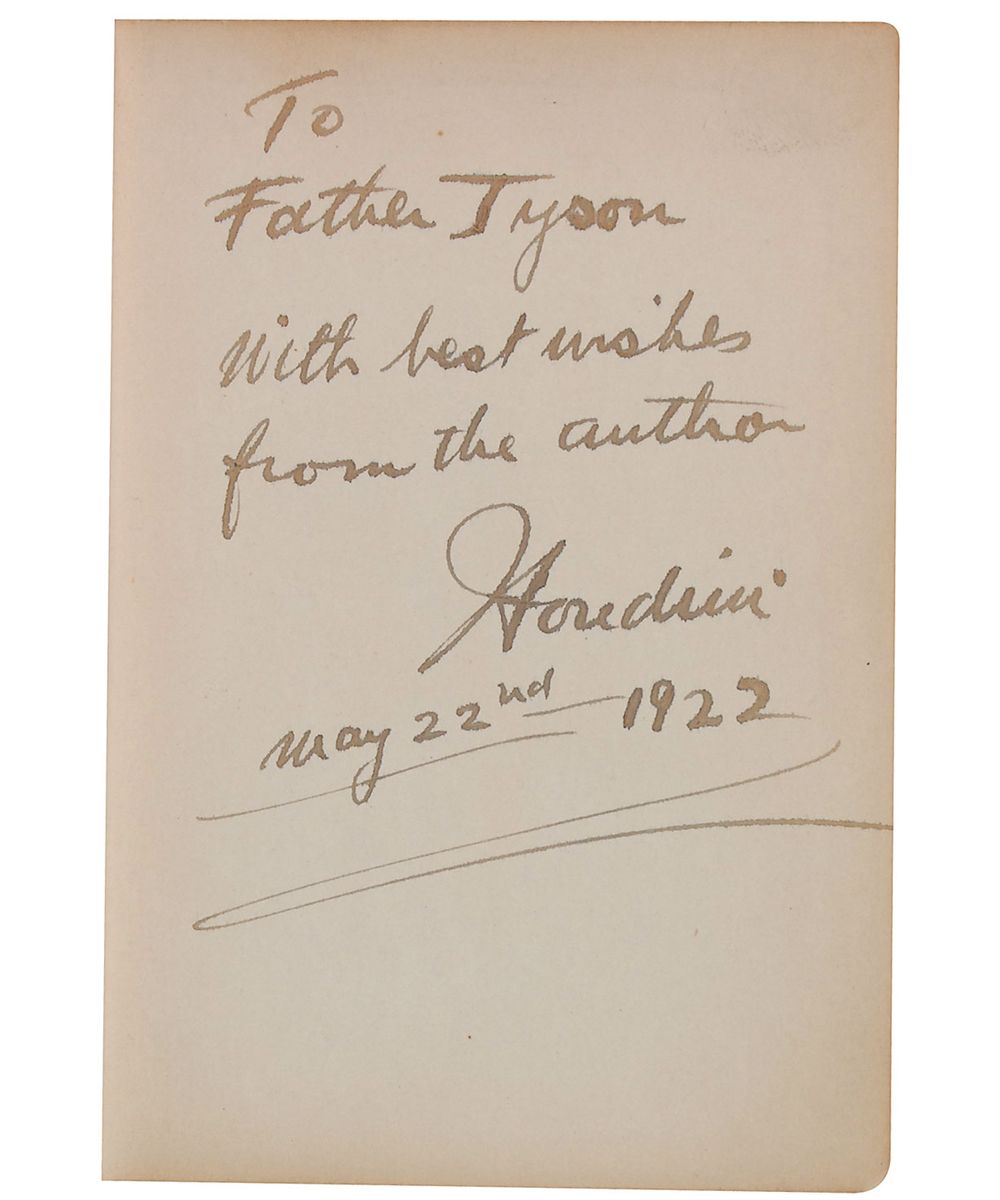 To
Father Tyson
With best wishes
from the author
Houdini
May 22nd — 1922